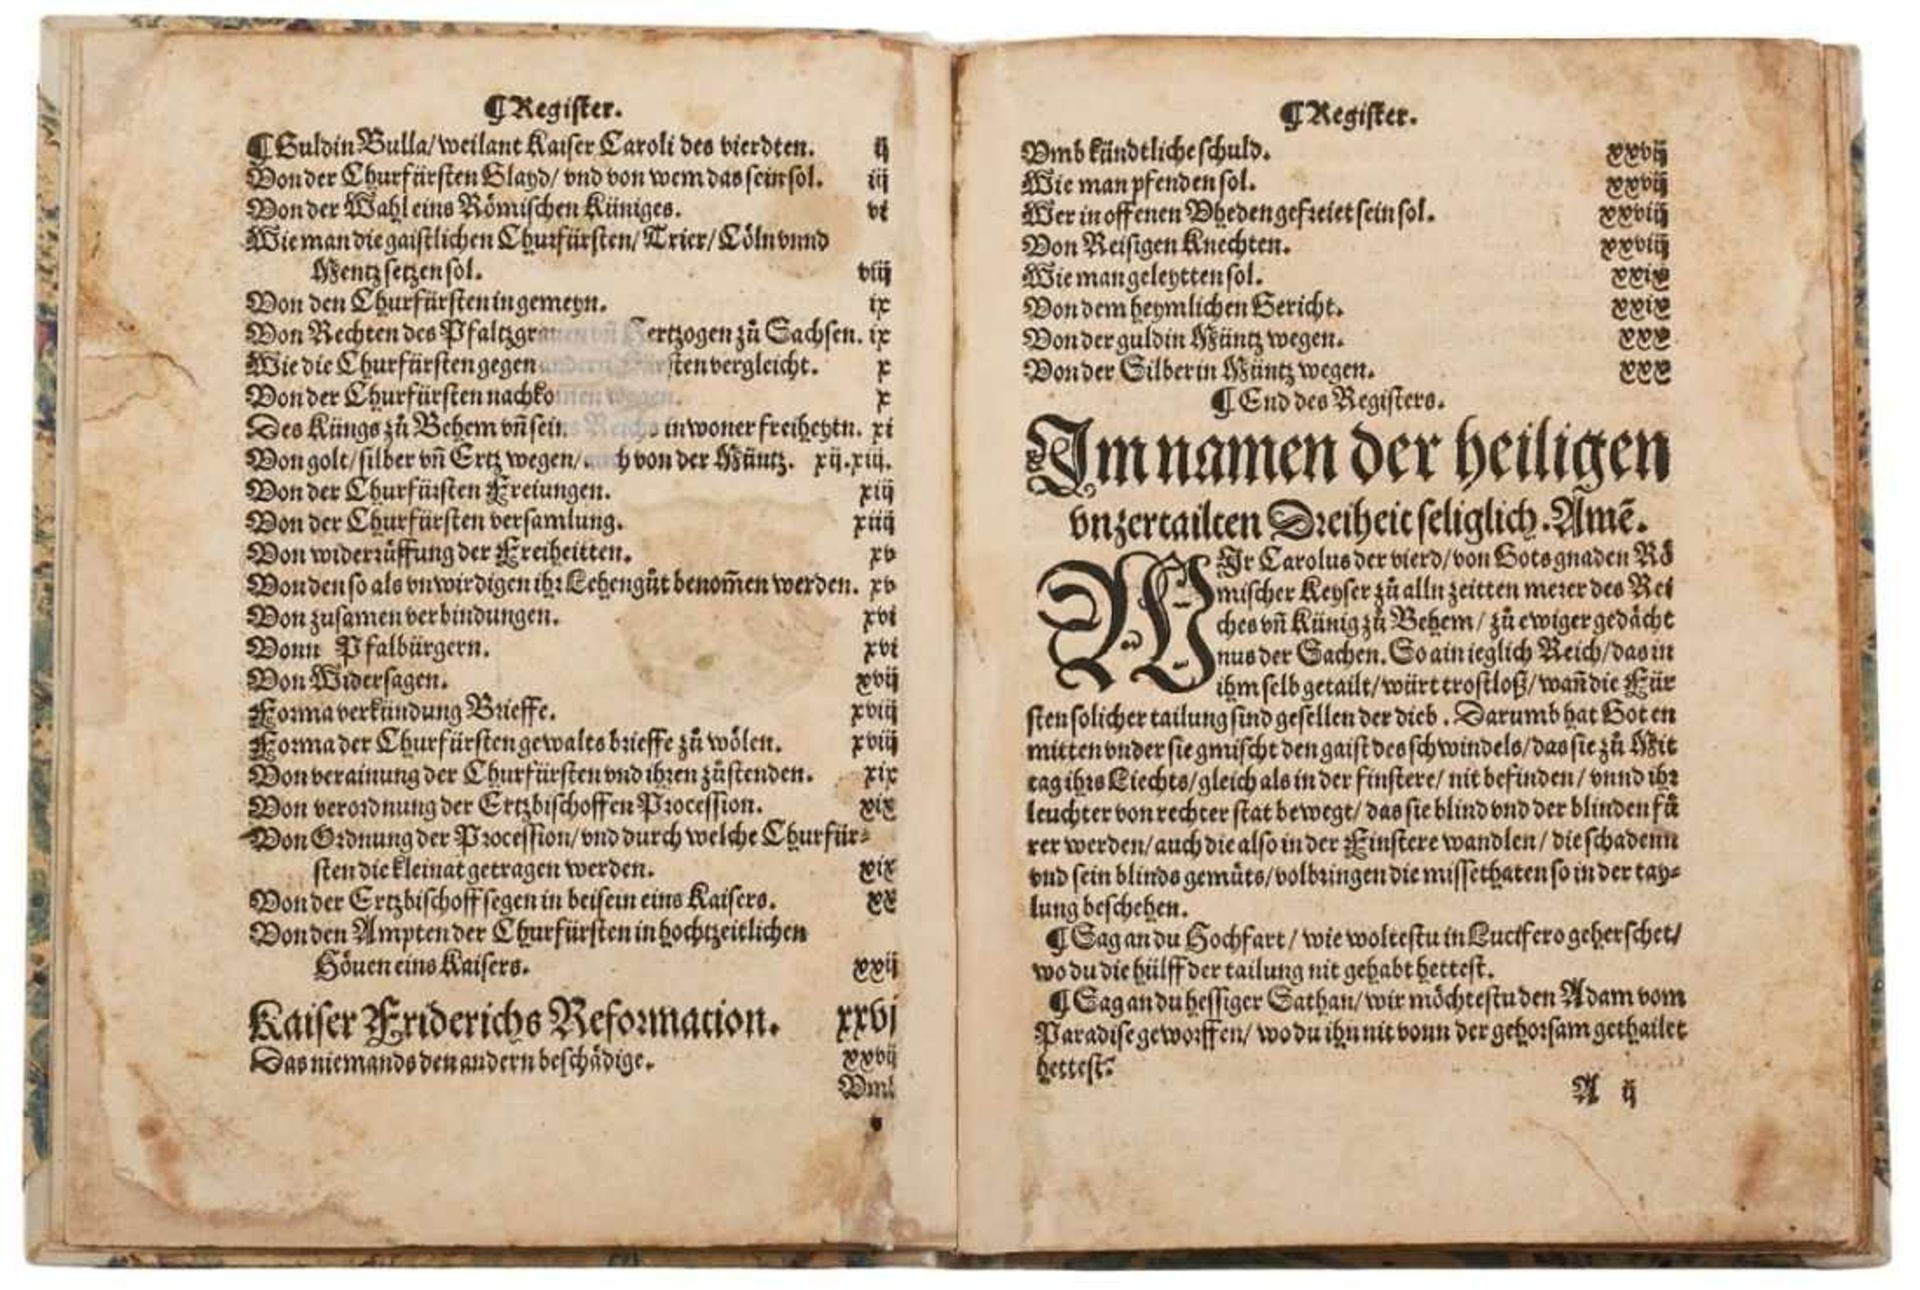 ¶ Register.
¶ Guldin Bulla/ weilant Kaiser Caroli des vierdten. ij
Von der Churfürsten Glayd/ vnd von wem das sein sol. iij
Von der Wahl eins Römischen Küniges. vi
Wie man die gaistlichen Churfürsten/ Trier/ Cöln vnnd
Mentz setzen sol. viij
Von den Churfürsten in gemeyn. ix
Von Rechten des Pfaltzgrauen vñ Hertzogen zů Sachsen. ix
Wie die Churfürsten gegen andern Fürsten vergleicht. x
Von der Churfürsten nachkom̃en wegen. x
Des Küngs zů Behem vñ sein Reichs inwoner freiheytn. xi
Von golt/ silber vñ Ertz wegen/ auch von der Müntz. xij.xiij.
Von der Churfürsten Freiungen. xiij
Von der Churfürsten versamlung. xiiij
Von widerrůffung der Freiheitten. xv
Von den so als vnwirdigen ihr Lehengůt benom̃en werden. xv
Von zusamen verbindungen. xvi
Vonn Pfalbürgern. xvi
Von Widersagen. xvij
Forma verkündung Brieffe. xviij
Forma der Churfürsten gewalts brieffe zů wölen. xviij
Von verainung der Churfürsten vnd ihren zůstenden. xix
Von verordnung der Ertzbischoffen Procession. xix
Von Ordnung der Procession/ vnd durch welche Churfür-
sten die kleinat getragen werden. xix
Von der Ertzbischoff segen in beisein eins Kaisers. xx
Von den Ampten der Churfürsten in hochtzeitlichen
Höuen eins Kaisers. xxij
Kaiser Friderichs Reformation. xxvj
Das niemands den andern beschädige. xxvij
Vmb
¶ Register.
Vmb kündtliche schuld. xxvij
Wie man pfenden sol. xxvij
Wer in offenen Vheden gefreiet sein sol. xxviij
Von Reisigen Knechten. xxviij
Wie man geleytten sol. xxix
Von dem heymlichen Gericht. xxix
Von der guldin Müntz wegen. xxx
Von der Silberin Müntz wegen. xxx
¶ End des Registers.
Im namen der heiligen
vnzertailten Dreiheit seliglich. Amẽ.
WIr Carolus der vierd/ von Gots gnaden Rö
mischer Keyser zů alln zeitten merer des Rei
ches vñ Künig zů Behem/ zů ewiger gedächt
nus der Sachen. So ain ieglich Reich/ das in
ihm selb getailt/ würt trostloß/ wañ die Für
sten solicher tailung sind gesellen der dieb. Darumb hat Got en
mitten vnder sie gmischt den gaist des schwindels/ das sie zů Mit
tag ihrs Liechts/ gleich als in der finstere/ nit befinden/ vnnd ihr
leuchter von rechter stat bewegt/ das sie blind vnd der blinden fů
rer werden/ auch die also in der Finstere wandlen/ die schadenn
vnd sein blinds gemüts/ volbringen die missethaten so in der tay-
lung beschehen.
¶ Sag an du Hochfart/ wie woltestu in Lucifero geherschet/
wo du die hülff der tailung nit gehabt hettest.
¶ Sag an du hessiger Sathan/ wir möchtestu den Adam vom
Paradise geworffen/ wo du ihn nit vonn der gehorsam gethailet
hettest?
A ij